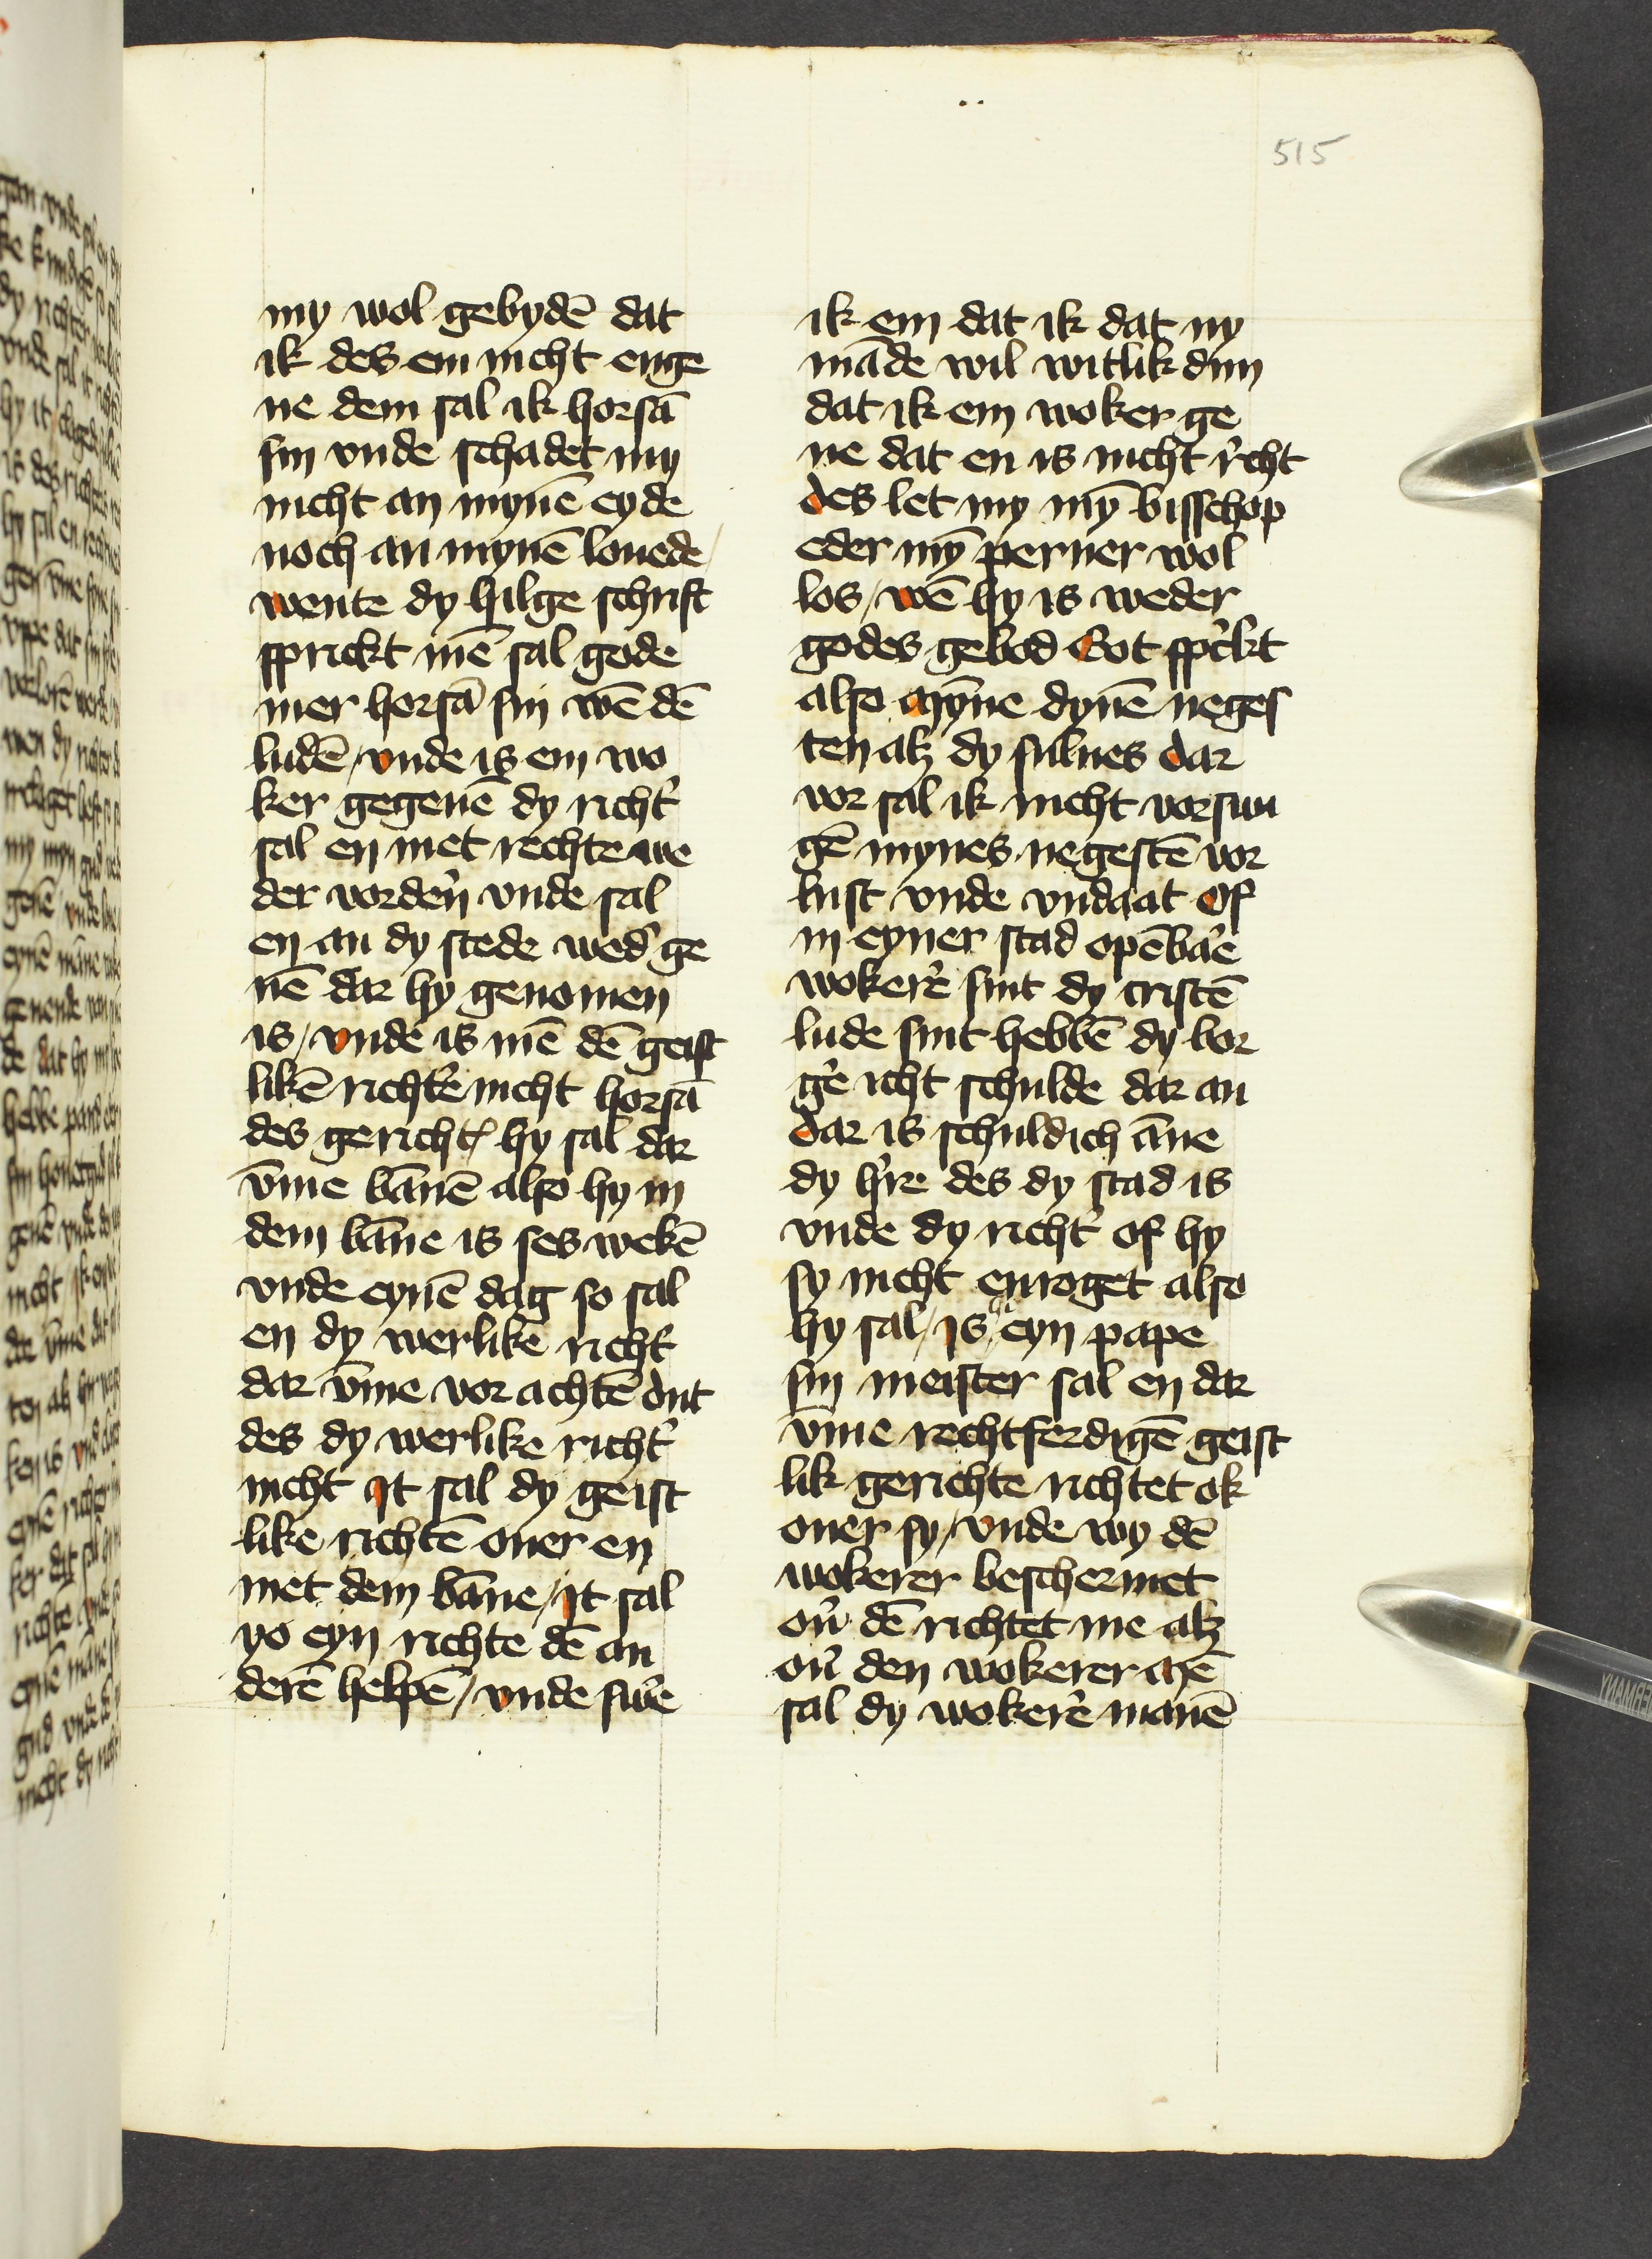 515
my wol gebydē dat
ik des em nicht enge
ue dem sal ik horsā
sin vnde schadet my
nicht an mynē eyde
noch an mynē louede /
wente dy hilge schrift
sprickt mē sal gode
mer horsā sin wē dē
ludē / vnde is em wo
ker gegeuē dy richt'
sal en met rechte we
der vorder̄n vnde sal
en an dy stede wed' ge
uē dar hy genomen
is / vnde is mē dē geist
likē richt'e nicht horsā
des gericht' hy sal dar
v̄me bānē also hy in
dem bāne is ses wekē
vnde eynē dag so sal
en dy werlike richt'
dar v̄me vor achtē dut
des dy werlike richt'
nicht It sal dy geist
like richtē ouer en
met dem bāne / It sal
yo eyn richte dē an
derē helpē / vnde swe'e
ik em dat ik dat ny
māde wil witlik dun
dat ik em woker ge
ue dat en is nicht r'cht
des let my mȳ bisschop
eder mȳ perner wol
los / wē hy is weder
godes gebod Got sp'ckt
also Mȳne dynē neges
ten alz dy sulues dar
vor sal ik nicht vorswi
gē mynes negestē vor
lust vnde vndaat Of
in eyner stad opēba'e
woker'e sint dy cristē
lude sint hebbē dy bor
g'e icht schulde dar an
dar is schuldich āne
dy h're des dy stad is
vnde dy richt' of hy
sy nicht enroget also
hy sal / is eyn pape
sin meister sal en dar
v̄me rechtferdigē geist
lik gerichte richtet ok
ouer sy / vnde wy dē
wokerer beschermet
ou' dē richtet me alz
ou' den wokerer Mē
sal dy woker'e manē